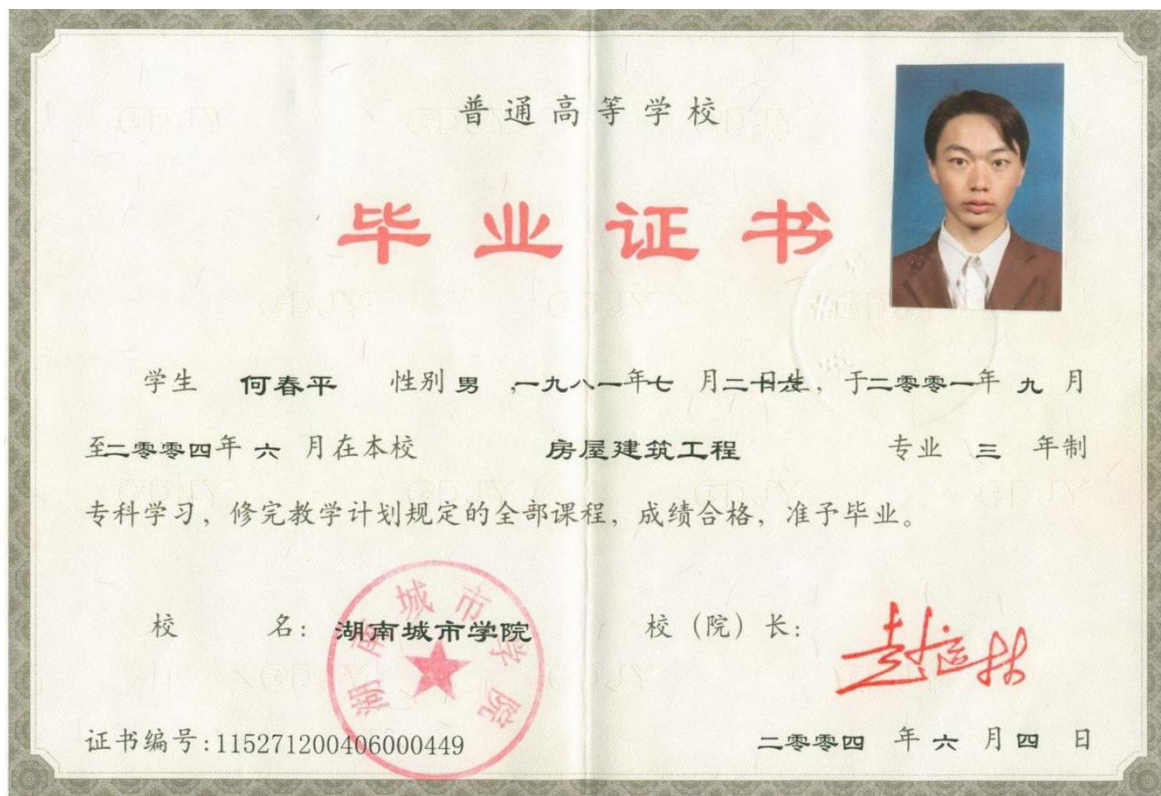 普通高等学校
毕业证书
学生 何春平 性别 男 ,一九八一年七 月二十 日生, 于二零零一年 九 月
至二零零四年 六 月在本校 房屋建筑工程 专业 三 年制
专科学习, 修完教学计划规定的全部课程, 成绩合格, 准予毕业。
校 名: 湖南城市学院 校 (院) 长: 赵运林
湖南城市学院
证书编号:115271200406000449 二零零四 年 六 月 四 日